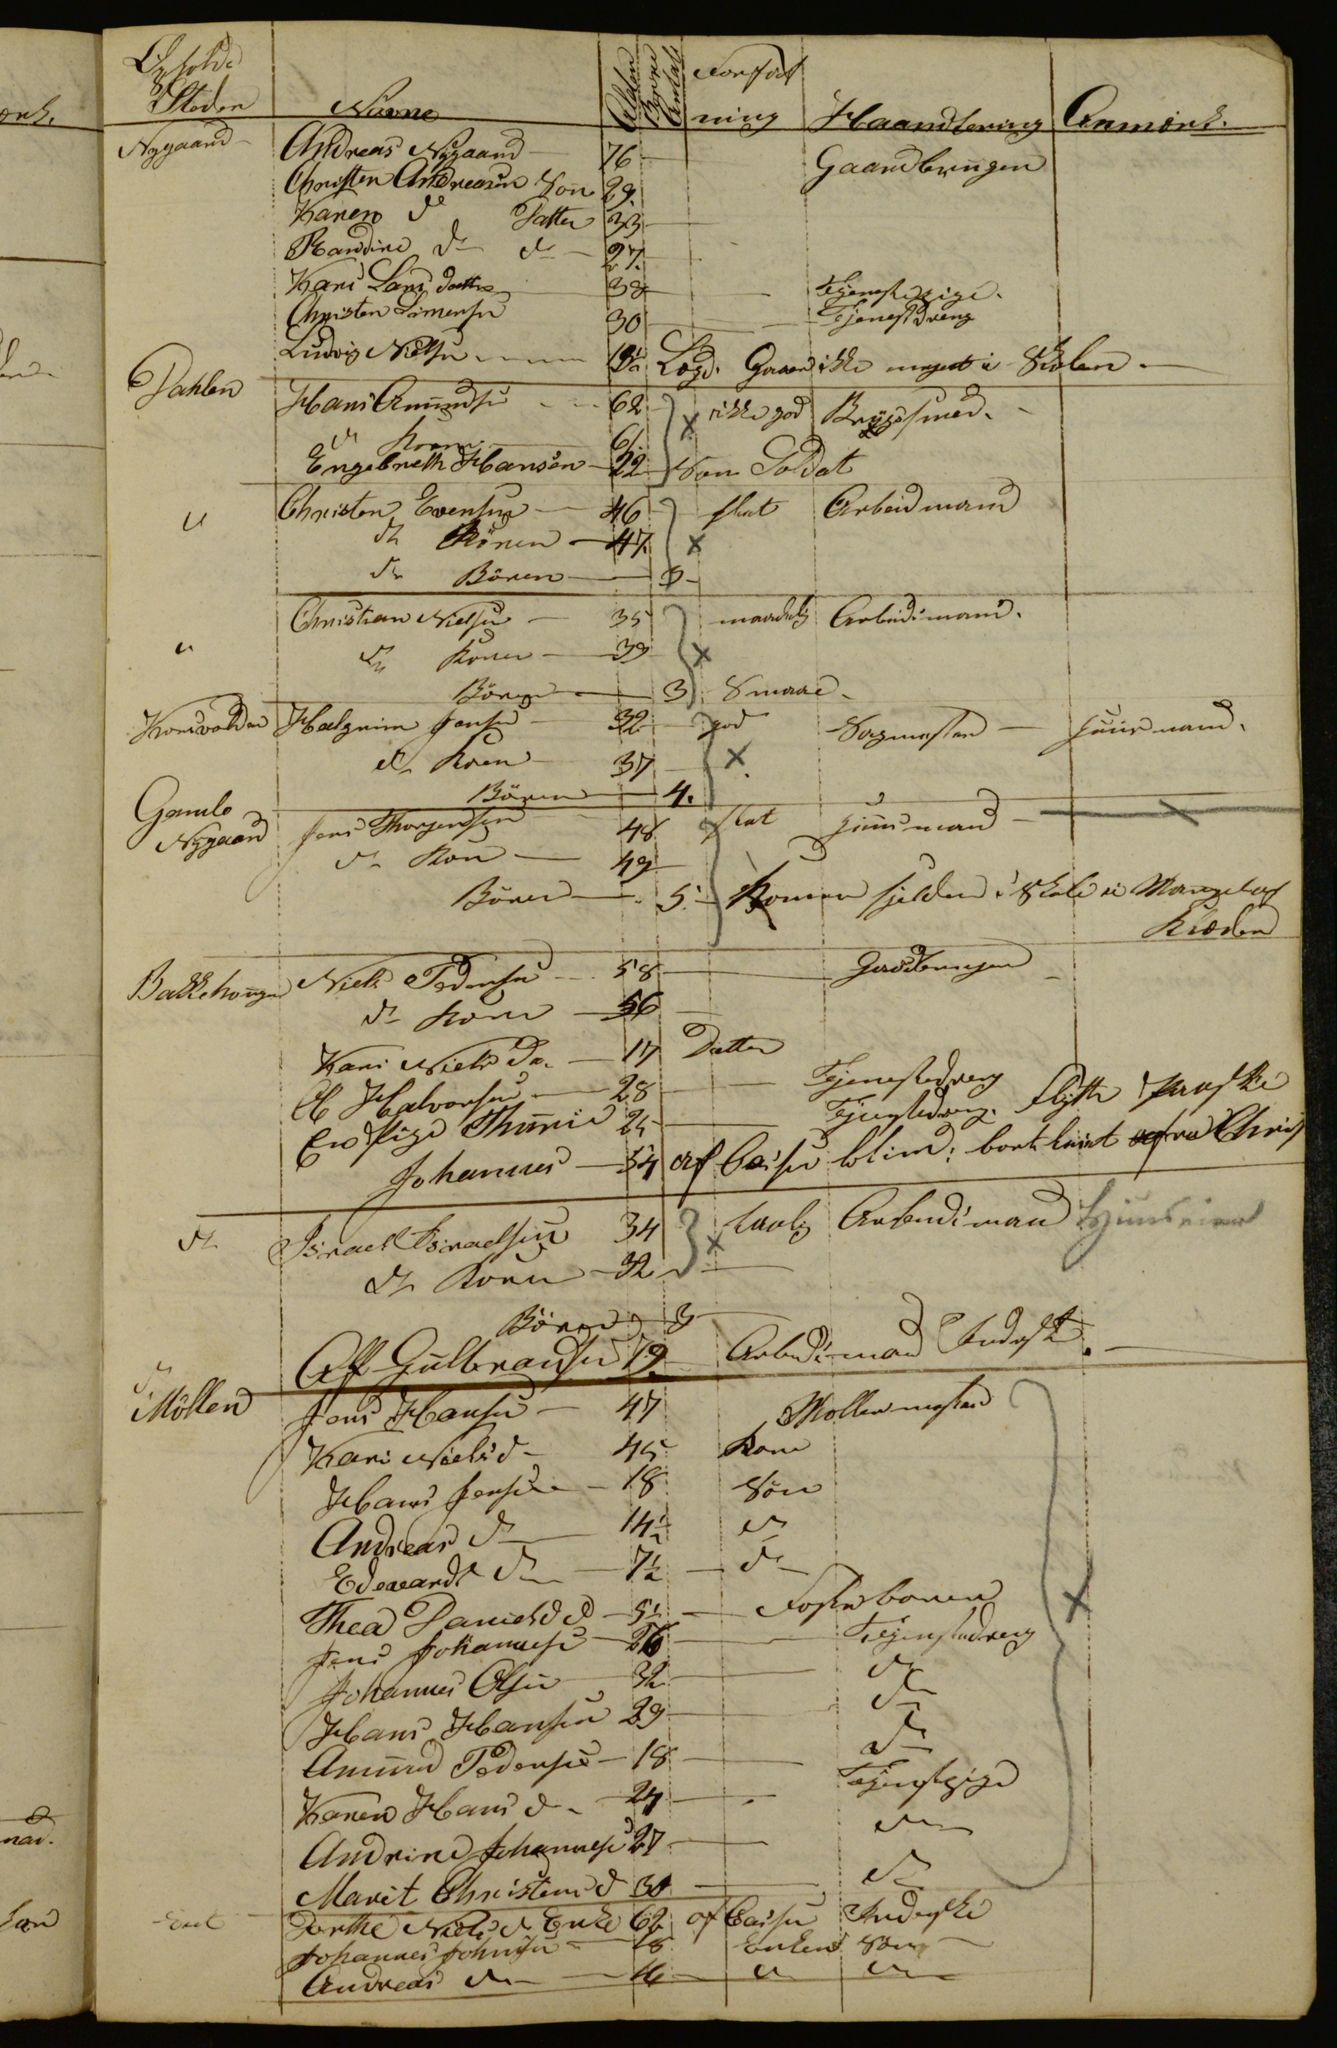 Opholds Steder Navne Alder Børns Antal Forfat ning Haandtering Anmerk.
Nygaard Andreas Nygaard 76 Gaardbruger
Christen Andreasen Søn 29
Karen do Datter 33
Randine do do 27
Kari Lars datter 38 Tjenestepige
Christen Simensen 30 Tjenestdreng
Ludvig Nielsen 13½ Lægd. Gaaer ikke meget i Skolen
Dahlen Hans Amundsen 62 ikke god Bøgsesmed
do Kone 61
Engebreth Hansen 22 Søn Soldat
" Christen Evensen 46 slet Arbeidsmand
do Konen 47
do Børen
" Christian Nielsen 35 maadelig Arbeidsmand
do Konen 39
Børen 3 Smaae
Korsvolden Halgrim Jensen 32 god Sagmester Huusmand
do Konen 37
Børen 4
Gamle Nygaard Jens Thorgersen 48 slet Huusmand
do Kone 49
Børen 5 Kommer sjelden i Skole a Mangel af
Klæder
Bakkehougen Niels Pedersen 58 Gaardbruger
do Kone 56
Kari Niels Da. 17 Datter
Ol Halvorsen 28 Tjenestedreng
En Pige Thurine 24 Tjenestedreng. flytte
Johannes 54 af Casse blind: bort
do Israel Israelsen 34 Arbeidsmand Huuseier
do Konen 32
Børen 3
Ole Gulbrandsen 79 Arbeidsmand Inderst
Möllen Jens Hansen 47 Møllermester
Kari Niels d 45 Kone
Hans Jensen 18 Søn
Andreas do 14½ do
Edevardt do 7½ do
Thea Daniels d 5½ Fosterbaren
Jens Johannesen 26 Tjenestedreng
Johannes Olsen 32 do
Hans Hansen 29 do
Amund Pedersen 18 do
Karen Hans d 24 Tjenestpige
Andrine Johannesd 27 do
Marit Christens d 30 do
Dorthe Niels d Enke 62 af Casse Inderske
Johannes Johnsen 18 Enkens Søn
Andreas do 16 " "